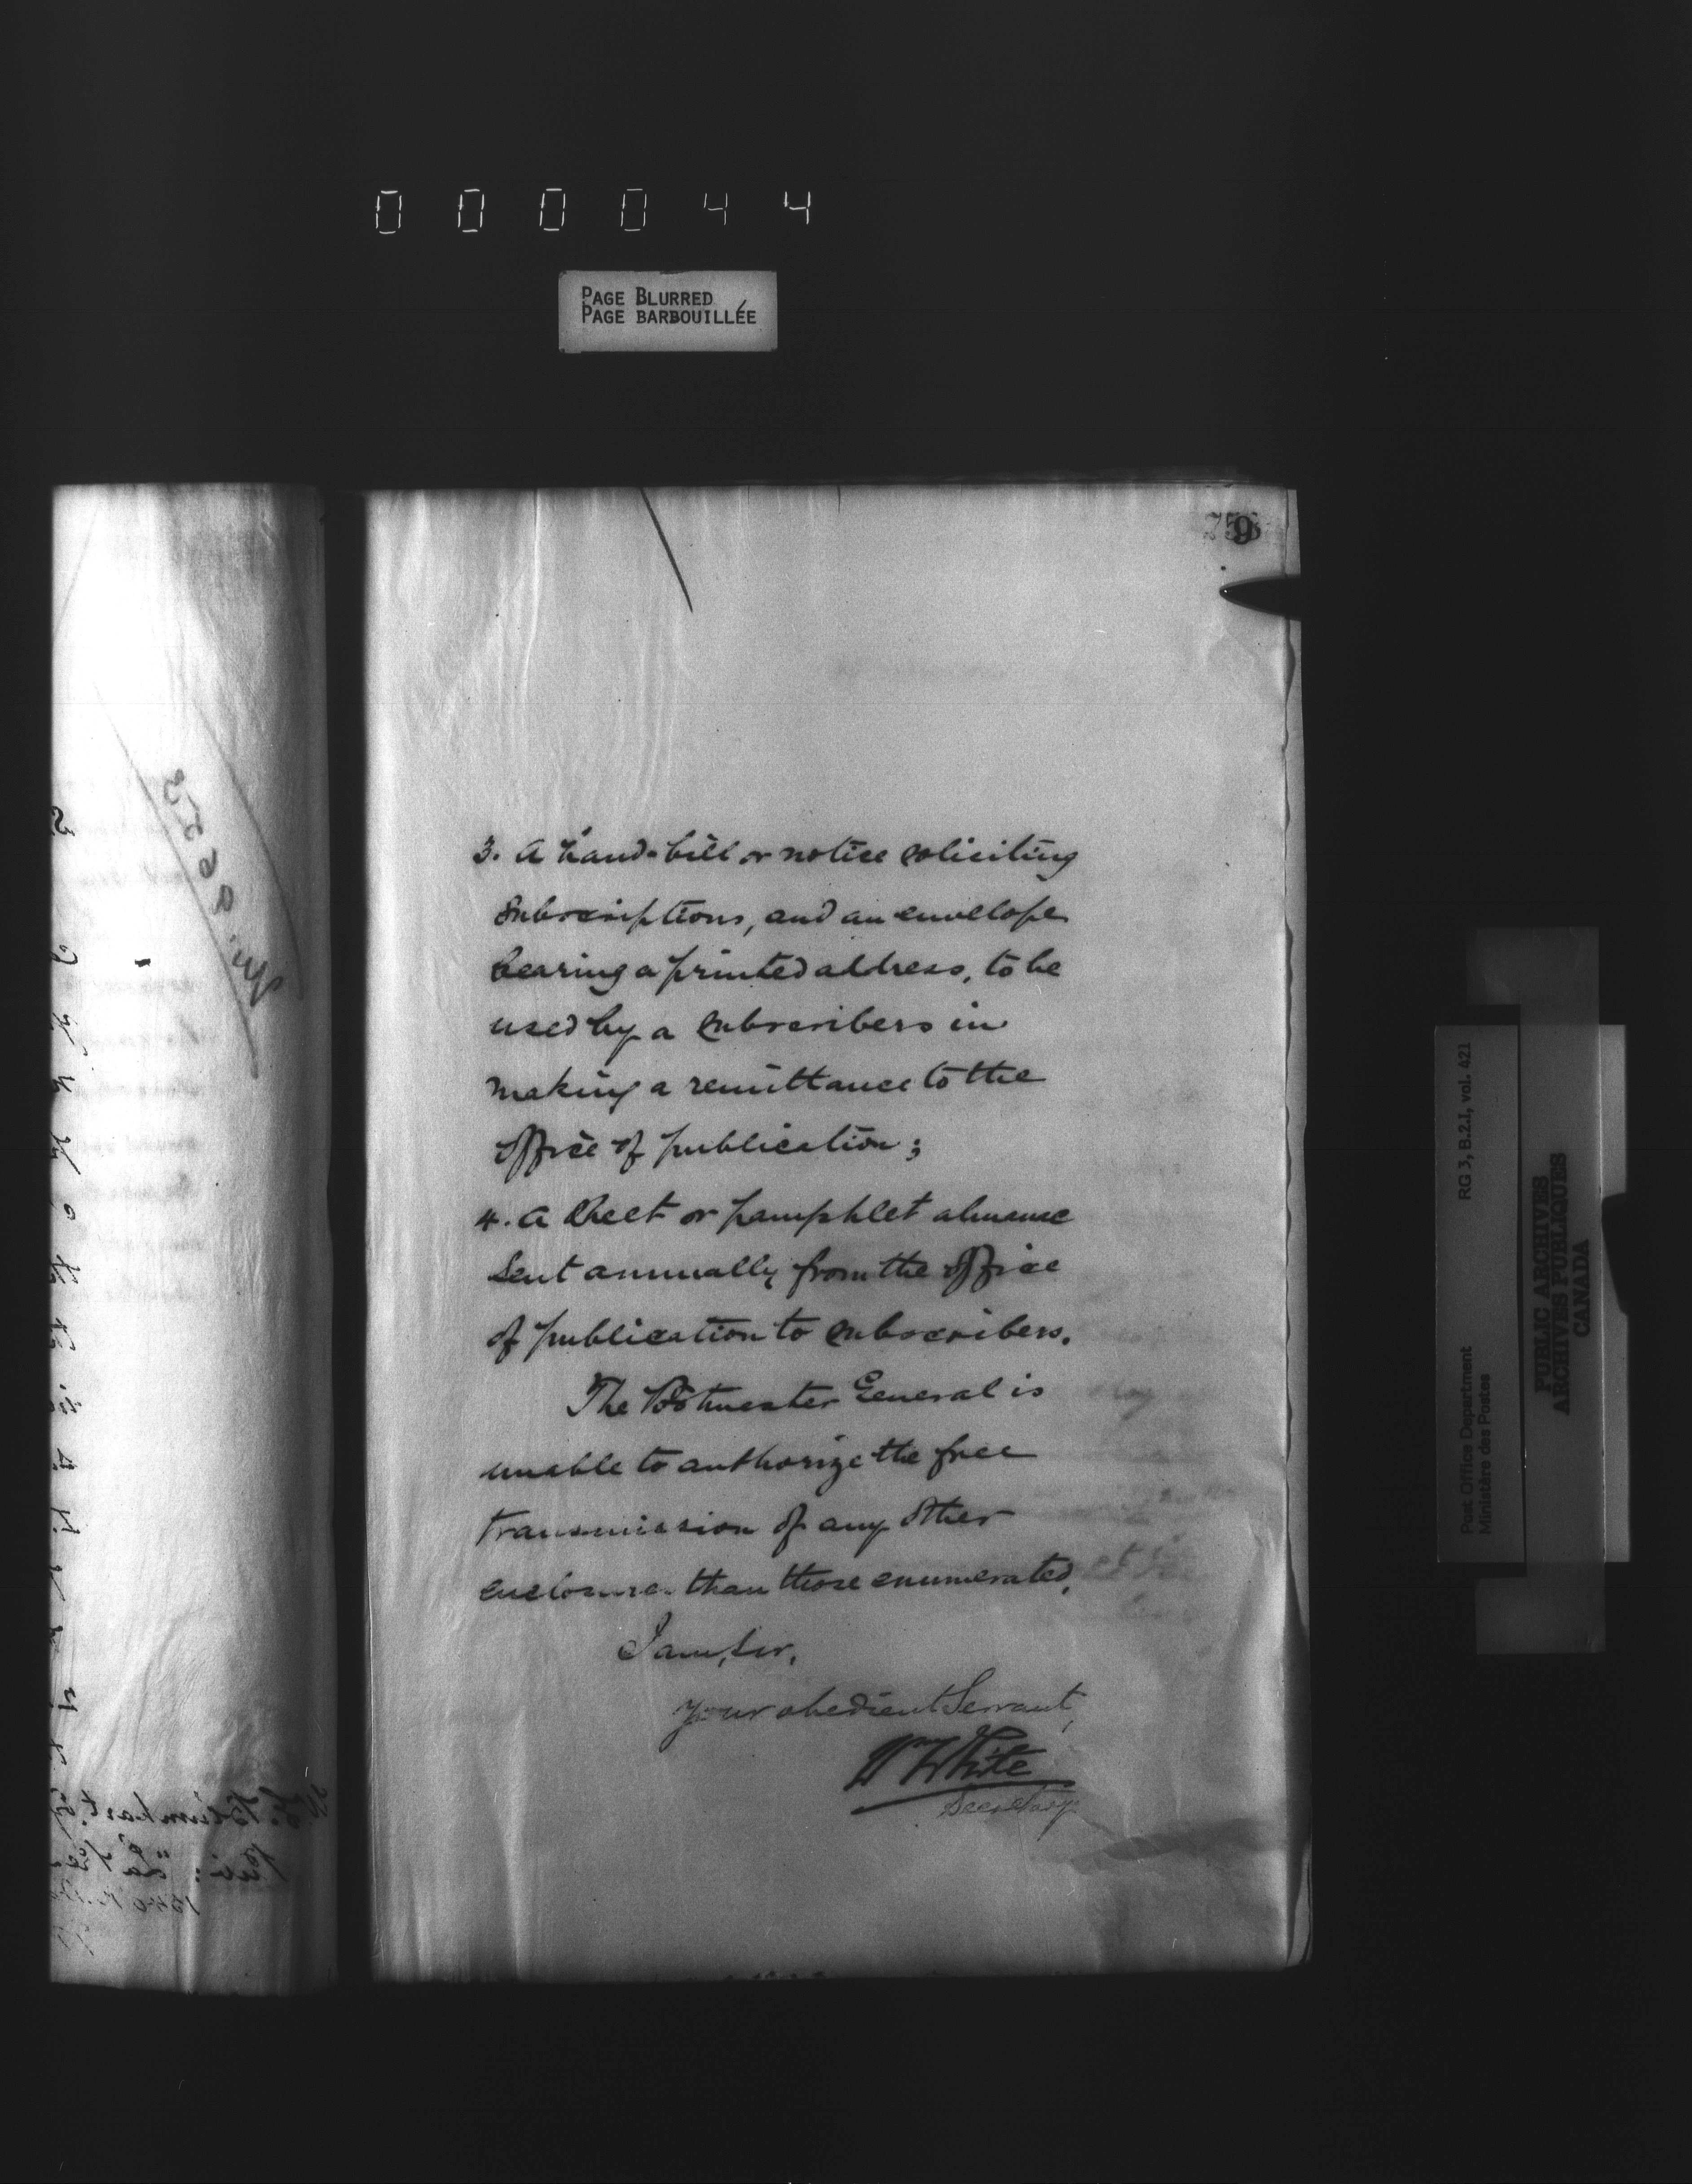 000044
PAGE BLURRED
PAGE BARBOUILLÉE
9
3. A hand-bill or notice soliciting
Subscriptions, and an envelope
bearing a printed address, to be
used by a subscribers in
making a remittance to the
office of publication;
4. A sheet or pamphlet almanac
sent annually from the office
of publication to subscribers.
The Postmaster General is
unable to authorize the free
transmission of any other
enclosure than those enumerated,
I am, Sir,
Your obedient Servant,
Wm White
Secretary
RG 3, B.2.I, vol. 421
Post Office Department
Ministère des Postes
PUBLIC ARCHIVES
ARCHIVES PUBLIQUES
CANADA